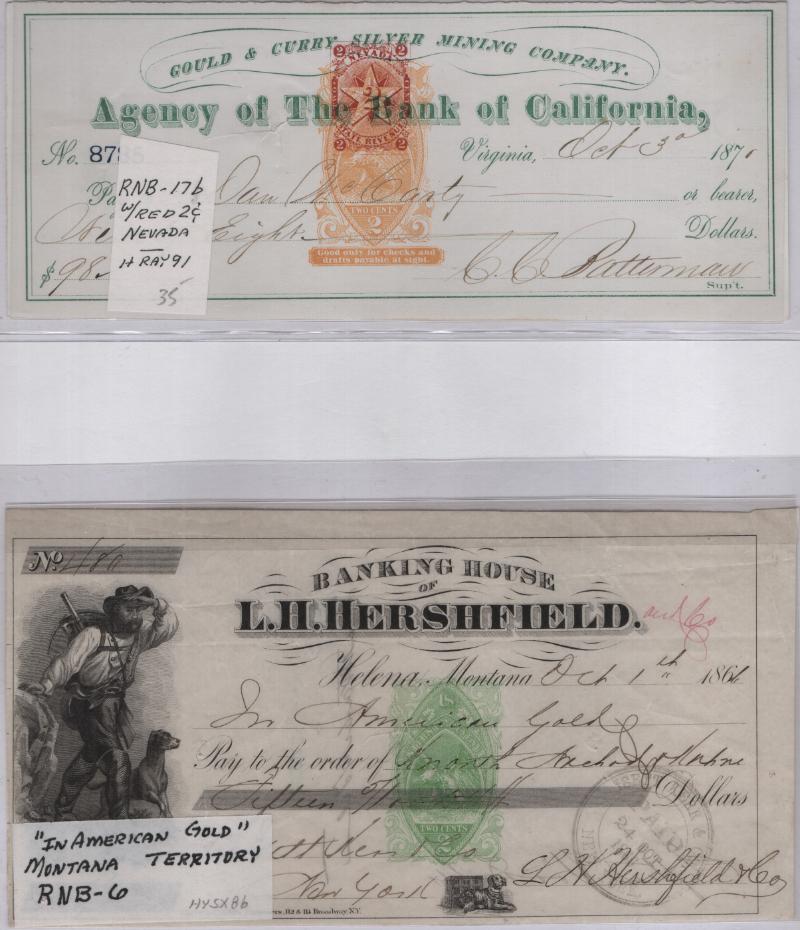 GOULD & CURRY SILVER MINING COMPANY.
2 NEVADA 2
2 STATE REVENUE 2
Agency of The Bank of California,
No. 87
Virginia, Oct 3d 1871
Pa Dan McCarty or bearer,
TWO CENTS
2
Eight Dollars.
Good only for checks and
drafts payable at sight.
$98
C. C. Patterman
Sup't.
RNB-17b
W/RED 2¢
NEVADA
H RAY 91
35
No. 480
BANKING HOUSE
OF
L.H. HERSHFIELD. and Co
Helena, Montana Oct 1th 1866
In American Gold
Pay to the order of
Fifteen Dollars
TWO CENTS
2
PAID
24 OCT
New York
L H Hershfield & Co
112 & 114 Broadway N.Y.
"IN AMERICAN GOLD"
MONTANA TERRITORY
RNB-6
HYSX86